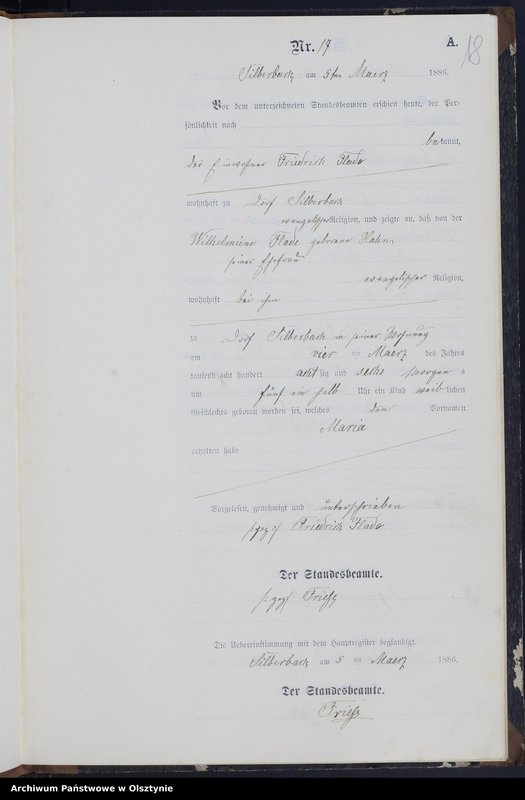 Nr. 17
A.
18
Silberbach am 5ten Maerz 1886.
Vor dem unterzeichneten Standesbeamten erschien heute, der Per-
sönlichkeit nach
bekannt,
der Einwohner Friedrich
wohnhaft zu Dorf Silberbach
evangelischer Religion, und zeigte an, daß von der
Wilhelmine geborene Hahn,
seiner Ehefrau
evangelischer Religion,
wohnhaft bei ihm
zu Dorf Silberbach in seiner Wohnung
am vier ten Maerz des Jahres
tausend acht hundert achtzig und sechs Morgen s
um fünf ein halb Uhr ein Kind weiblichen
Geschlechts geboren worden sei, welches den Vornamen
Maria
erhalten habe
Vorgelesen, genehmigt und unterschrieben
Friedrich
Der Standesbeamte.
Die Uebereinstimmung mit dem Hauptregister beglaubigt.
Silberbach am 5 ten Maerz 1886.
Der Standesbeamte.
Archiwum Państwowe w Olsztynie